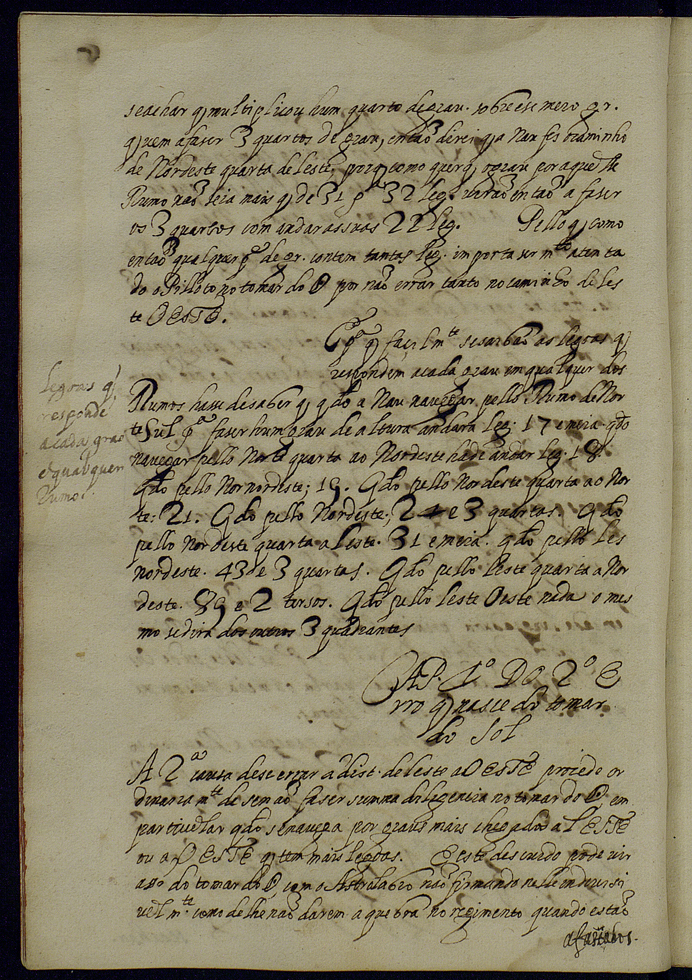 se achar q̃ multiplicou hum quarto de grau. sobre esse mero gr.
q̃ vem a faser 3 quartos de grau, então direi q̃ a Nau fes caminho
de Nordeste quarta de leste, porq̃ como quer q̃ o grau por aquelle
Rumo não seia mais q̃ de 31 p.ª 32 leg. virão então a faser
os 3 quartos com andar as suas 22 leg. Pello q̃ como
então qualquer p.te de gr. contem tantas leg. importa ser m.to atenta
do o Pilloto no tomar do O por não errar tanto no caminho de les
te OESTE.
E p.ª q̃ facilm.te se saibaõ as legoas q̃
respondem a cada grau em qualquer dos
legoas q̃
responde
a cada grao
e qualquer
Rumo.
Rumos hasse de saber q̃ q̃do a Nau navegar pello Rumo de Nor
te Sul p.ª faser hum grau de altura andara leg: 17 e meia q̃do
navegar pello Norte quarta ao Nordeste hade andar leg. 18
Qdo pello Nornordeste; 19. Qdo pello Nordeste quarta ao Nor
te: 21. Qdo pello Nordeste; 24 e 3 quartas. Qdo
pello Nordeste quarta a leste. 31 e meia. qdo pello les
nordeste. 43 de 3 quartas. Qdo pello leste quarta a Nor
deste. 89 e 2 tersos. Qdo pello leste Oeste nada o mes
mo se dira dos outros 3 quadrantes
CAP. 1º DO 2º E
rro q̃ nasce do tomar
do Sol
A 2ª causa de se errar a dist. de leste a OESTE procede or
dinariam.te de se não faser summa diligencia no tomar do O. em
particular qdo se navega por graus mais chegados a lESTE
ou a OESTE q̃ tem mais legoas. E este descuido pode vir
a do tomar do O com o Astrolabio não firmando nelle indivisi
velm.te como de lhe não darem a quebra no regimento quando estão
afastados.